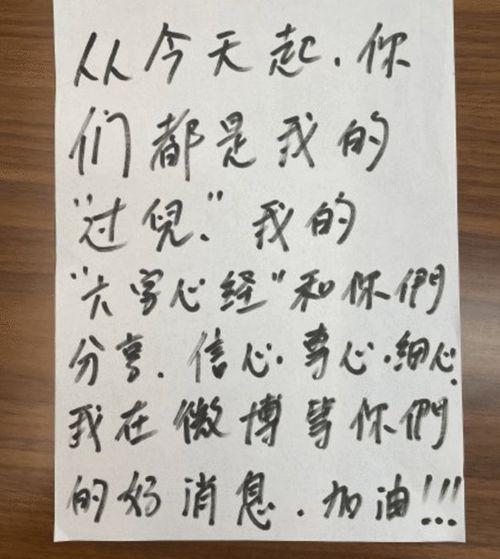 从今天起.你
们都是我的
"过兒."我的
"六字心经"和你們
分享.信心.专心.细心.
我在微博等你們
的好消息.加油!!!